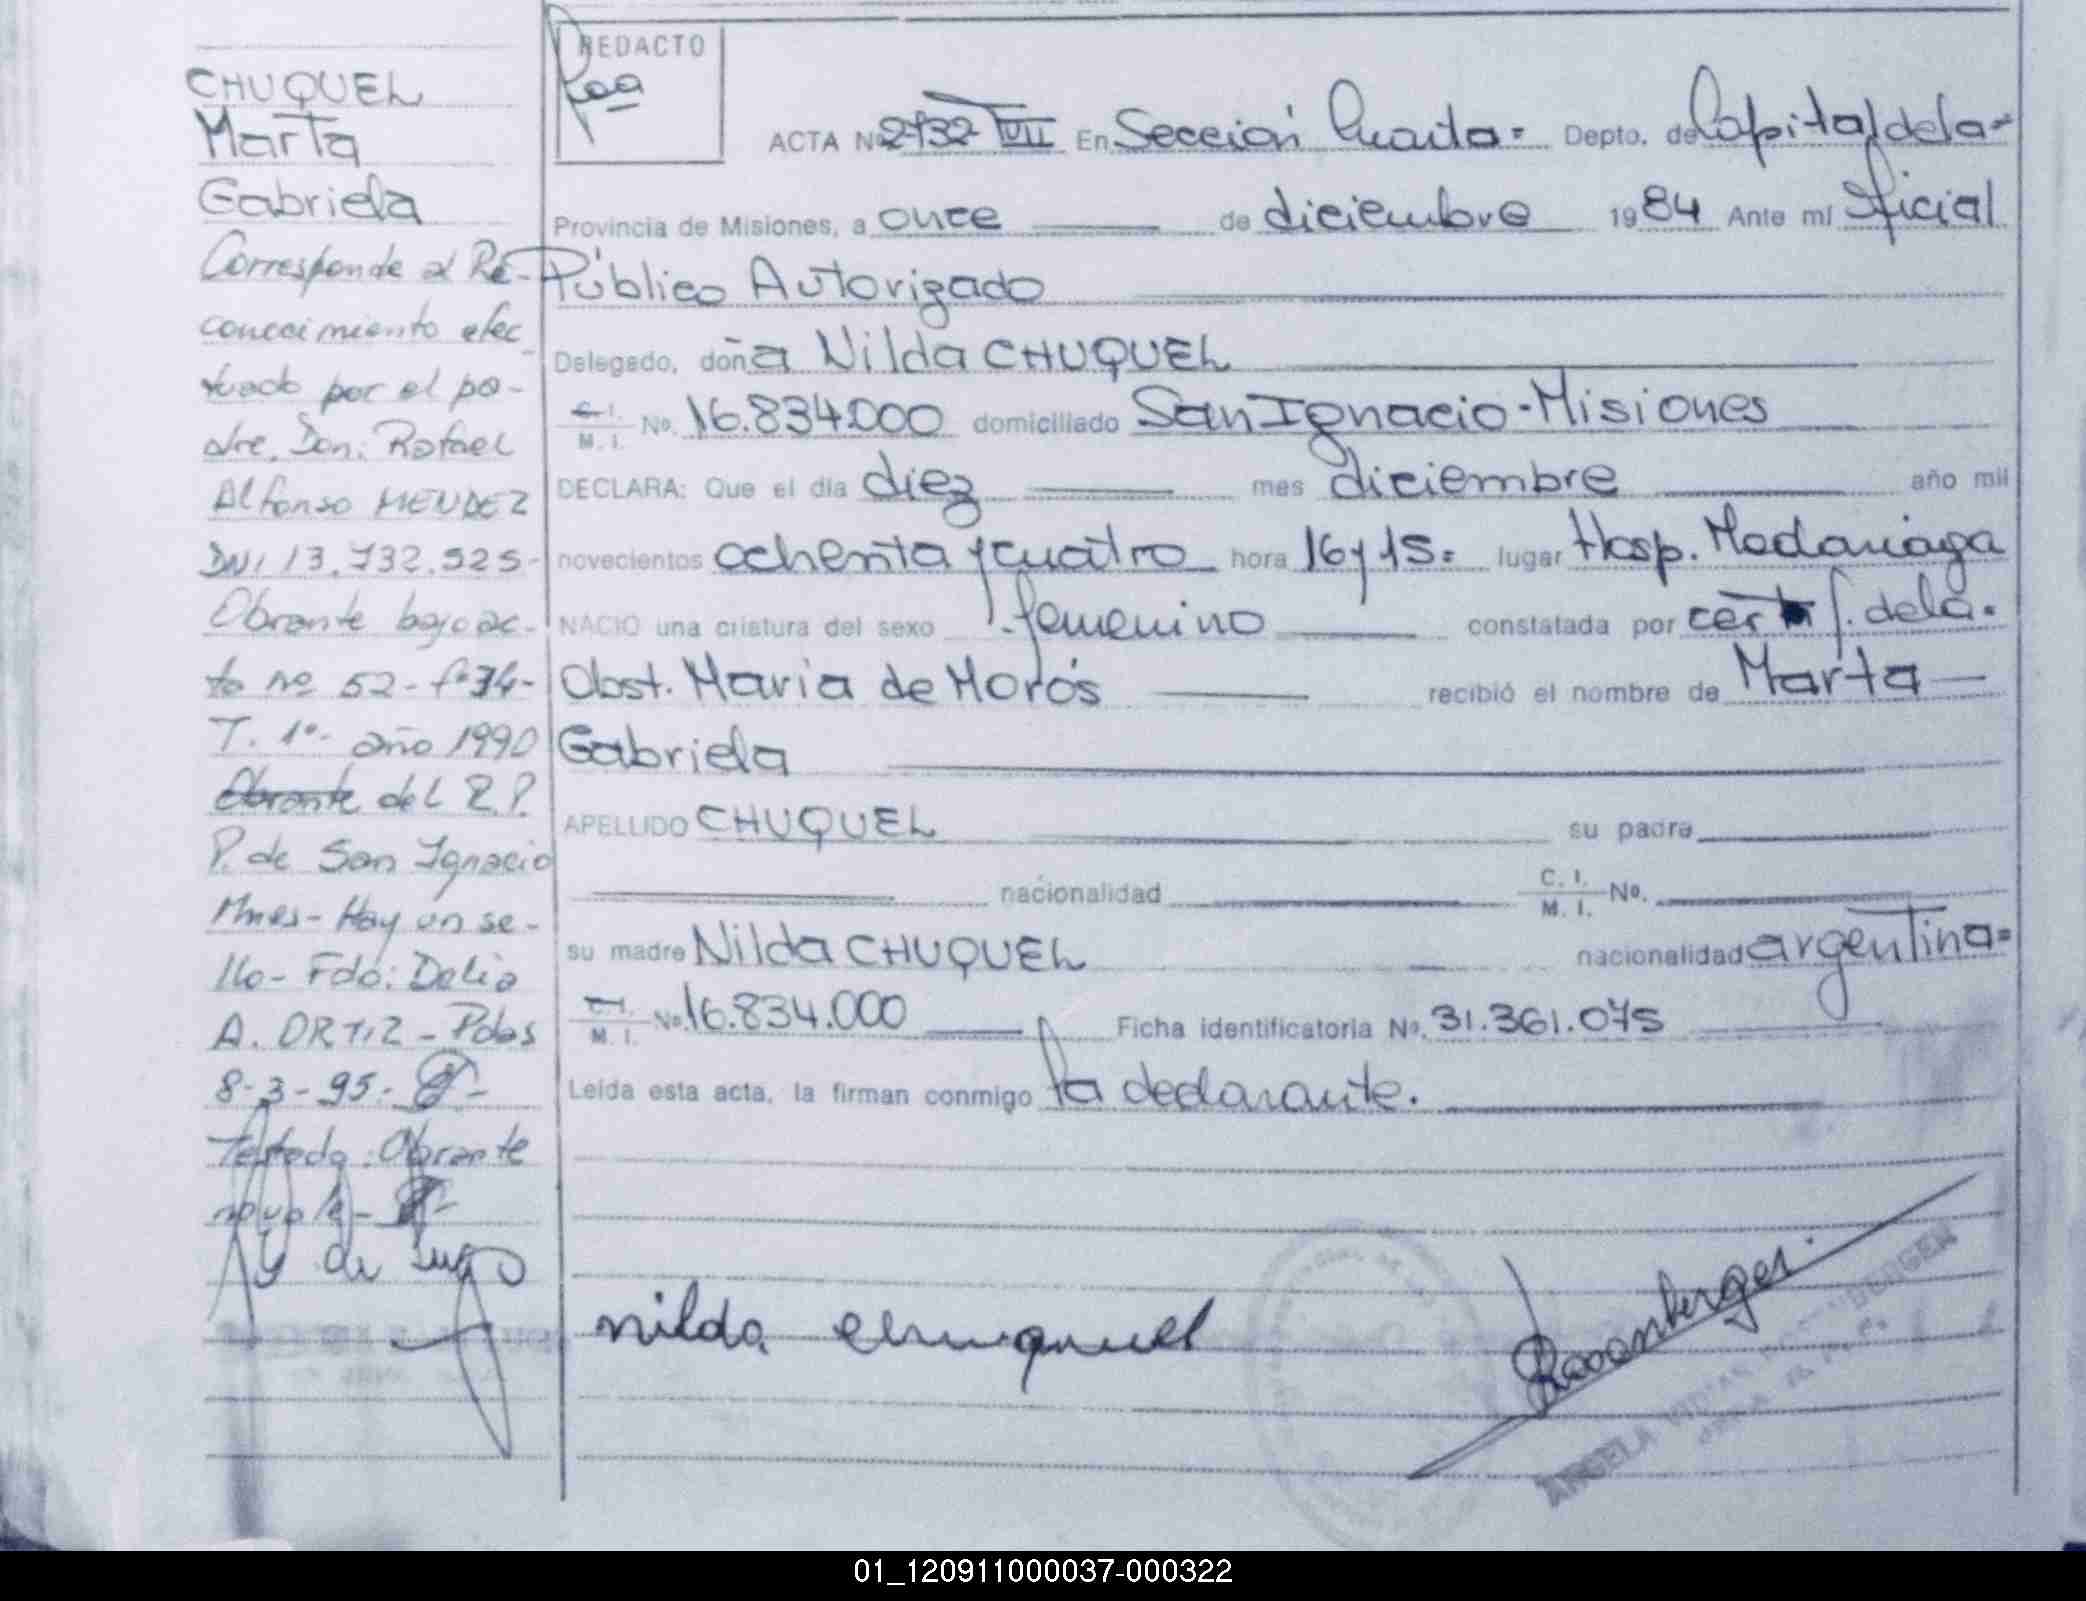 CHUQUEL
Marta
Gabriela
Corresponde al Re-
conocimiento efec
tuado por el pa-
dre, Don: Rafael
Alfonso MENDEZ
DNI 13.732.525-
Obrante bajo ac-
ta nº 52- fº 74-
T. 1º- año 1990
Obrante del R.P.
P. de San Ignacio
Mnes- Hay un se-
llo- Fdo: Delia
A. ORTIZ - Pdas
8-3-95-
Testado: Obrante
no vale-
REDACTO
ACTA Nº 2732 VII En Sección Cuarta= Depto. de Capital de la=
Provincia de Misiones, a once de diciembre 1984 Ante mí Oficial
Público Autorizado
Delegado, doña Nilda CHUQUEL
C. I. M. I. No. 16.834.000 domiciliado San Ignacio-Misiones
DECLARA: Que el día diez mes diciembre año mil
novecientos ochenta y cuatro hora 16 y 15= lugar Hosp. Madariaga
NACIO una criatura del sexo femenino constatada por certif. de la.
Obst. Maria de Morós recibió el nombre de Marta
Gabriela
APELLIDO CHUQUEL su padre
nacionalidad C. I. M. I. No.
su madre Nilda CHUQUEL nacionalidad argentina=
C. I. M. I. No. 16.834.000 Ficha identificatoria No. 31.361.075
Leída esta acta, la firman conmigo la declarante.
nilda chuquel
ANGELA
01_120911000037-000322